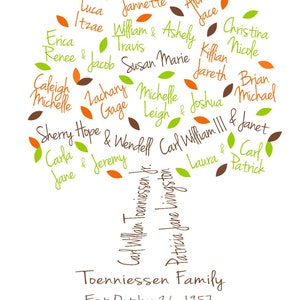 Luca Jannette
Itzae Jace
Erica William & Ashely Christina
Renee & Jacob Travis Nicole
Susan Marie Killian
Jareth
Caleigh Zachary Michelle Brian
Michelle Gage Leigh & Joshua Michael
Sherry Hope & Wendell Carl William III & Janet
Carla Laura & Carl
Jane & Jeremy Patrick
Carl William Toenniessen Jr.
Patricia Jane Livingston
Toenniessen Family